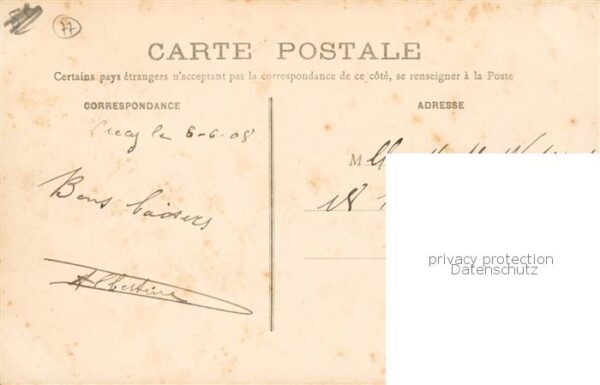 77
CARTE POSTALE
Certains pays étrangers n'acceptant pas la correspondance de ce côté, se renseigner à la Poste
CORRESPONDANCE
Crecy le 6-6-08
Bons baisers
Albertine
ADRESSE
M
18
privacy protection
Datenschutz